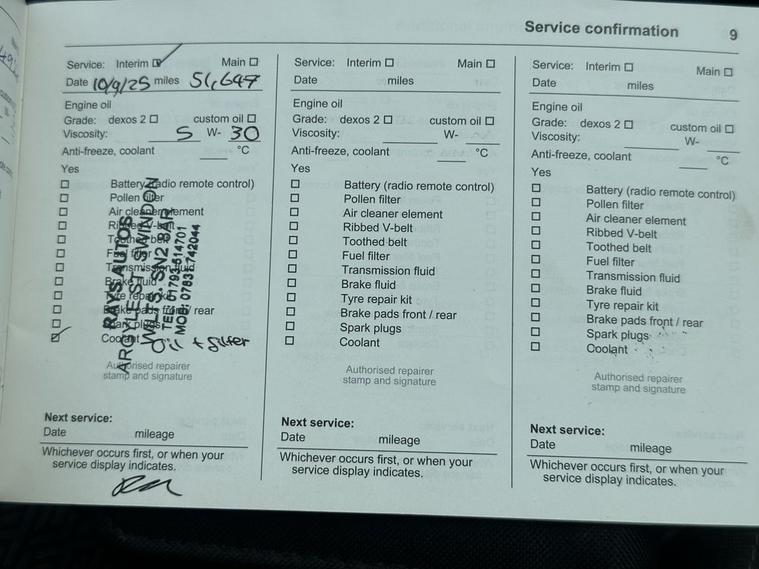 Service confirmation 9
Service: Interim Main
Date 10/9/25 miles 51,647
Engine oil
Grade: dexos 2 custom oil
Viscosity: 5 W- 30
Anti-freeze, coolant °C
Yes
Battery (radio remote control)
Pollen filter
Air cleaner element
Ribbed V-belt
Toothed belt
Fuel filter
Transmission fluid
Brake fluid
Tyre repair kit
Brake pads front / rear
Spark plugs
Coolant Oil + filter
RAYS AUTOS
ARGYLE ST SWINDON
WILTS. SN2 8AR
TEL: 01793 614701
Authorised repairer
stamp and signature
Next service:
Date mileage
Whichever occurs first, or when your
service display indicates.
Service: Interim Main
Date miles
Engine oil
Grade: dexos 2 custom oil
Viscosity: W-
Anti-freeze, coolant °C
Yes
Battery (radio remote control)
Pollen filter
Air cleaner element
Ribbed V-belt
Toothed belt
Fuel filter
Transmission fluid
Brake fluid
Tyre repair kit
Brake pads front / rear
Spark plugs
Coolant
Authorised repairer
stamp and signature
Next service:
Date mileage
Whichever occurs first, or when your
service display indicates.
Service: Interim Main
Date miles
Engine oil
Grade: dexos 2 custom oil
Viscosity: W-
Anti-freeze, coolant °C
Yes
Battery (radio remote control)
Pollen filter
Air cleaner element
Ribbed V-belt
Toothed belt
Fuel filter
Transmission fluid
Brake fluid
Tyre repair kit
Brake pads front / rear
Spark plugs
Coolant
Authorised repairer
stamp and signature
Next service:
Date mileage
Whichever occurs first, or when your
service display indicates.